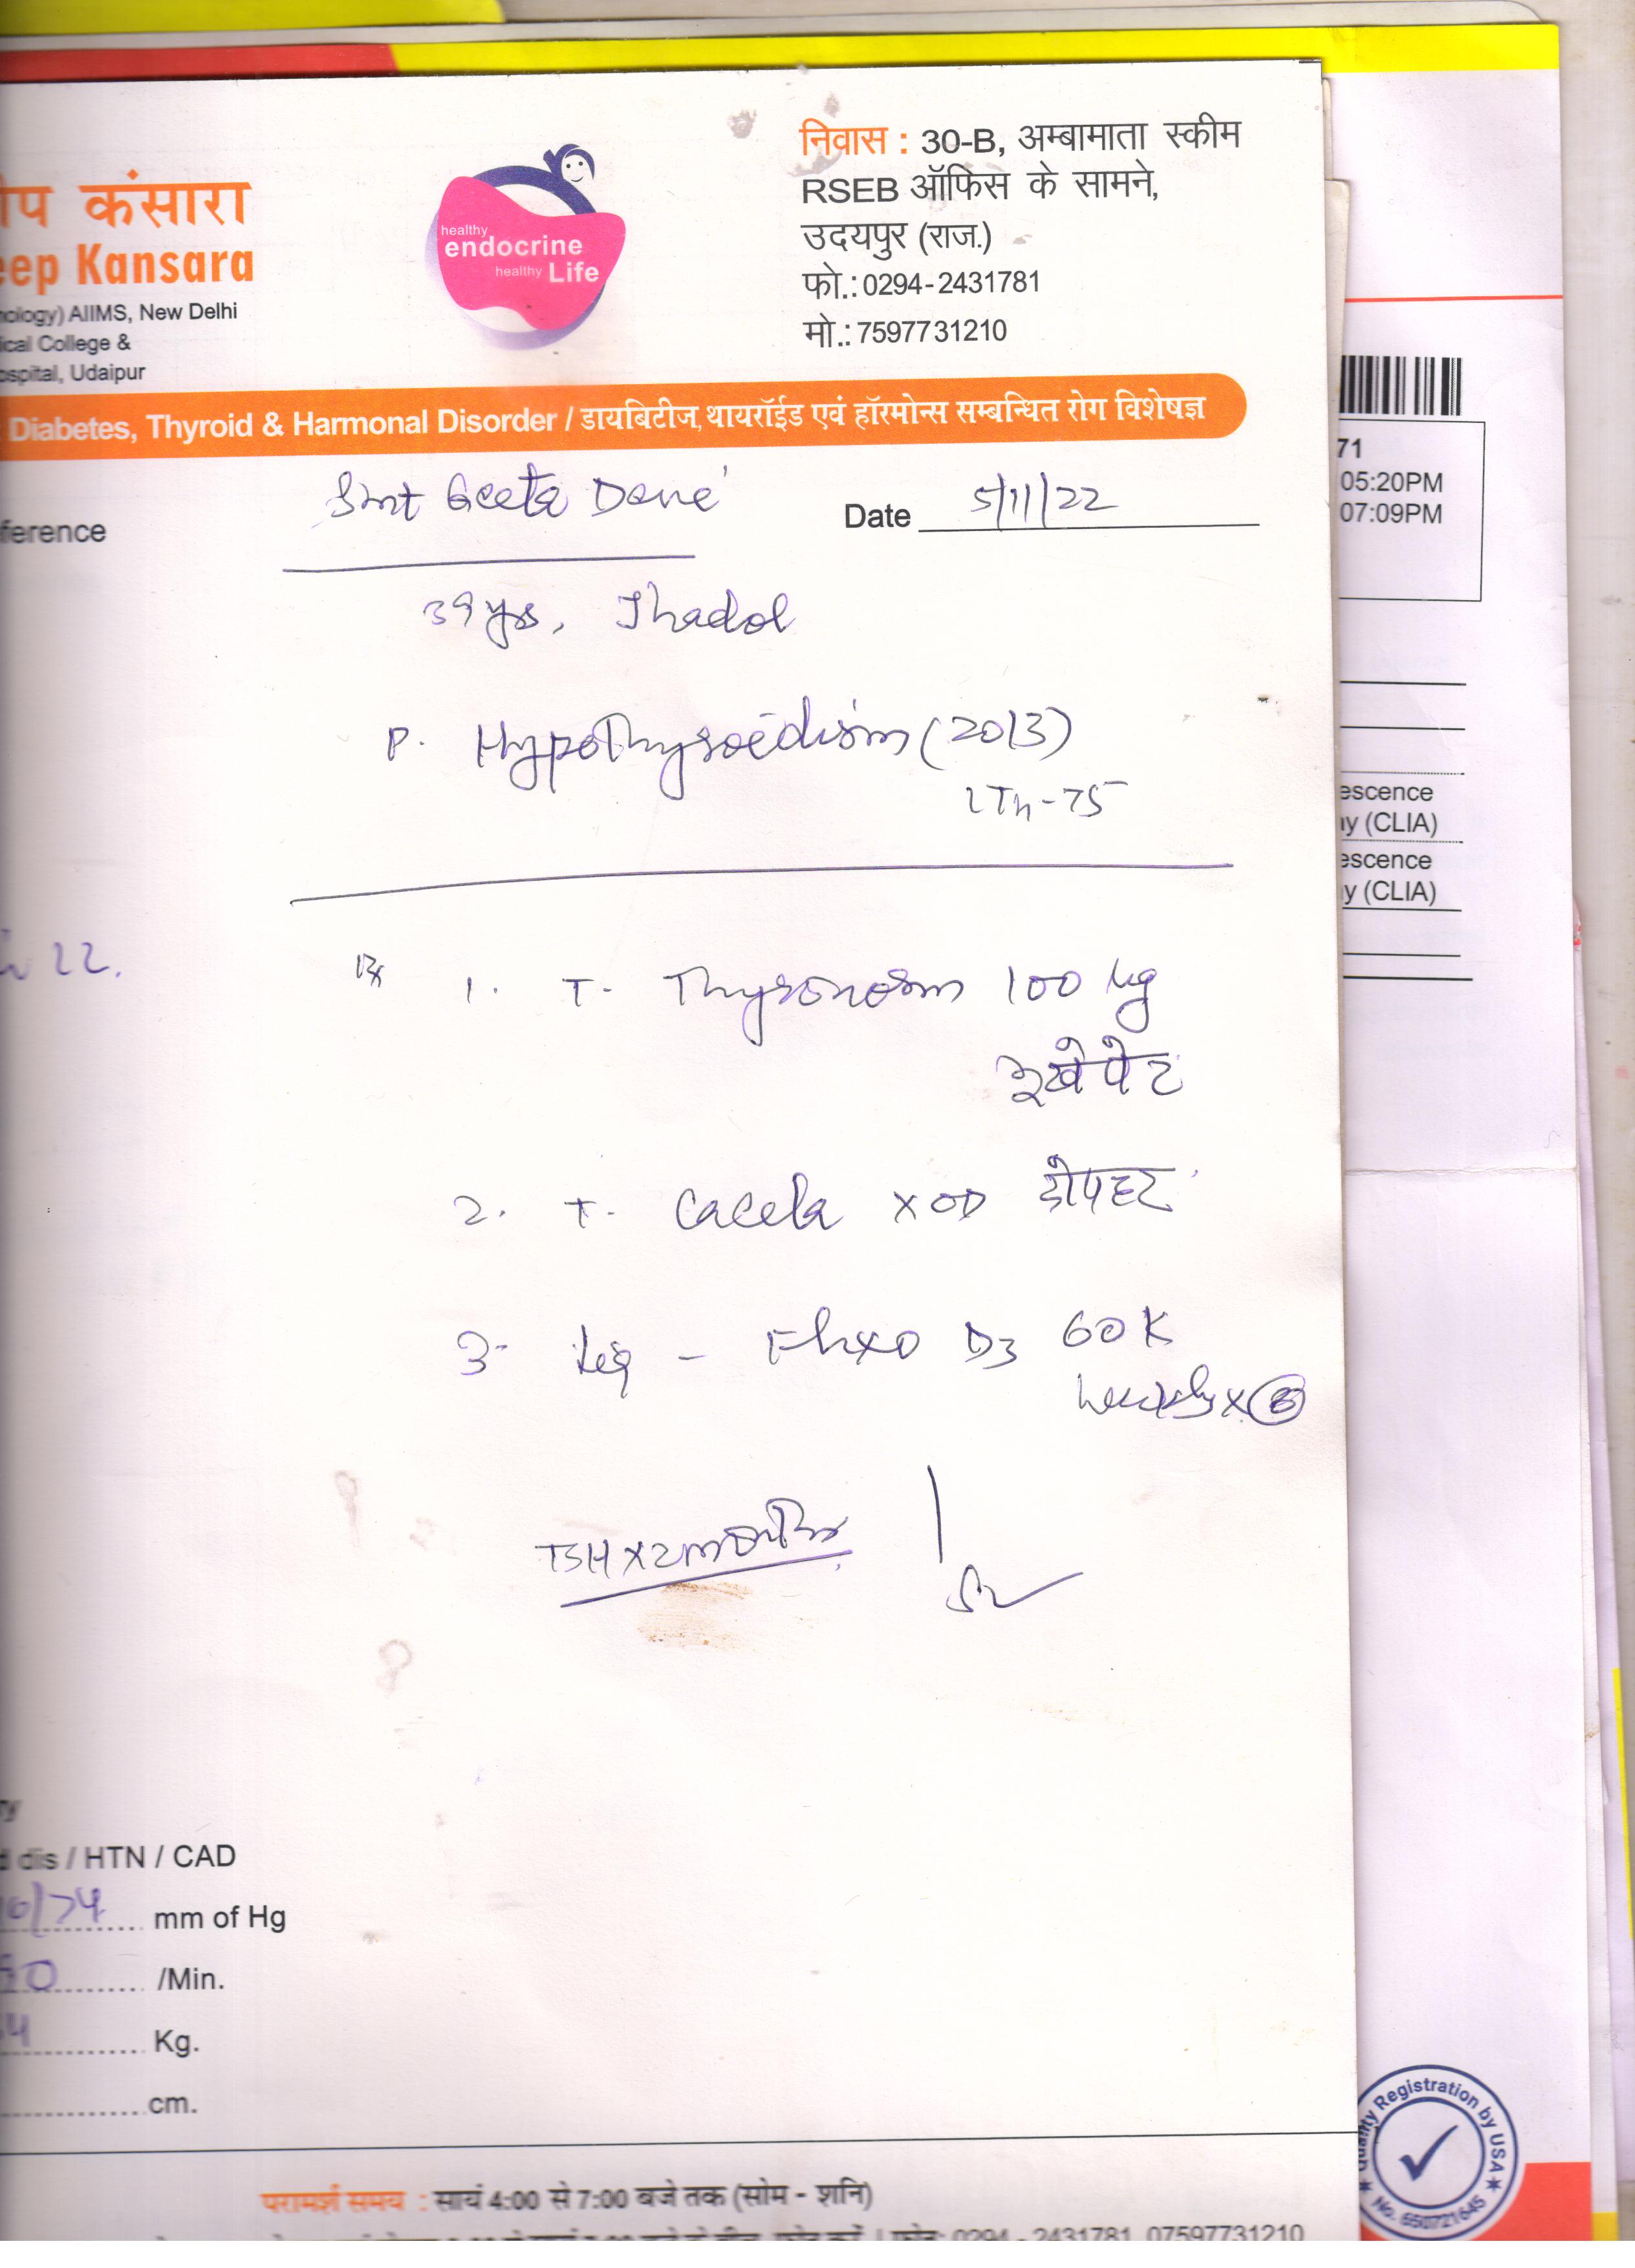 निवास : 30-B, अम्बामाता स्कीम
RSEB ऑफिस के सामने,
उदयपुर (राज.)
फो.: 0294-2431781
मो.: 7597731210
healthy
endocrine
healthy Life
ीप कंसारा
eep Kansara
nology) AIIMS, New Delhi
ical College &
ospital, Udaipur
Diabetes, Thyroid & Harmonal Disorder / डायबिटीज, थायरॉईड एवं हॉरमोन्स सम्बन्धित रोग विशेषज्ञ
Smt Geeta Dave
Date 5/11/22
ference
39 yrs, Jhadol
P. Hypothyroidism (2013)
LTh-75
22.
Rx 1. T. Thyronorm 100 µg
भूखे पेट
2. T. Cacela x OD दोपहर
3. D3 60K
weekly x
TSH x 2 months
ry
d dis / HTN / CAD
/74 mm of Hg
/Min.
Kg.
cm.
परामर्श समय : सायं 4:00 से 7:00 बजे तक (सोम - शनि)
0294 - 2431781, 07597731210
71
05:20PM
07:09PM
escence
ay (CLIA)
escence
y (CLIA)
Quality Registration by USA
No. 650721645